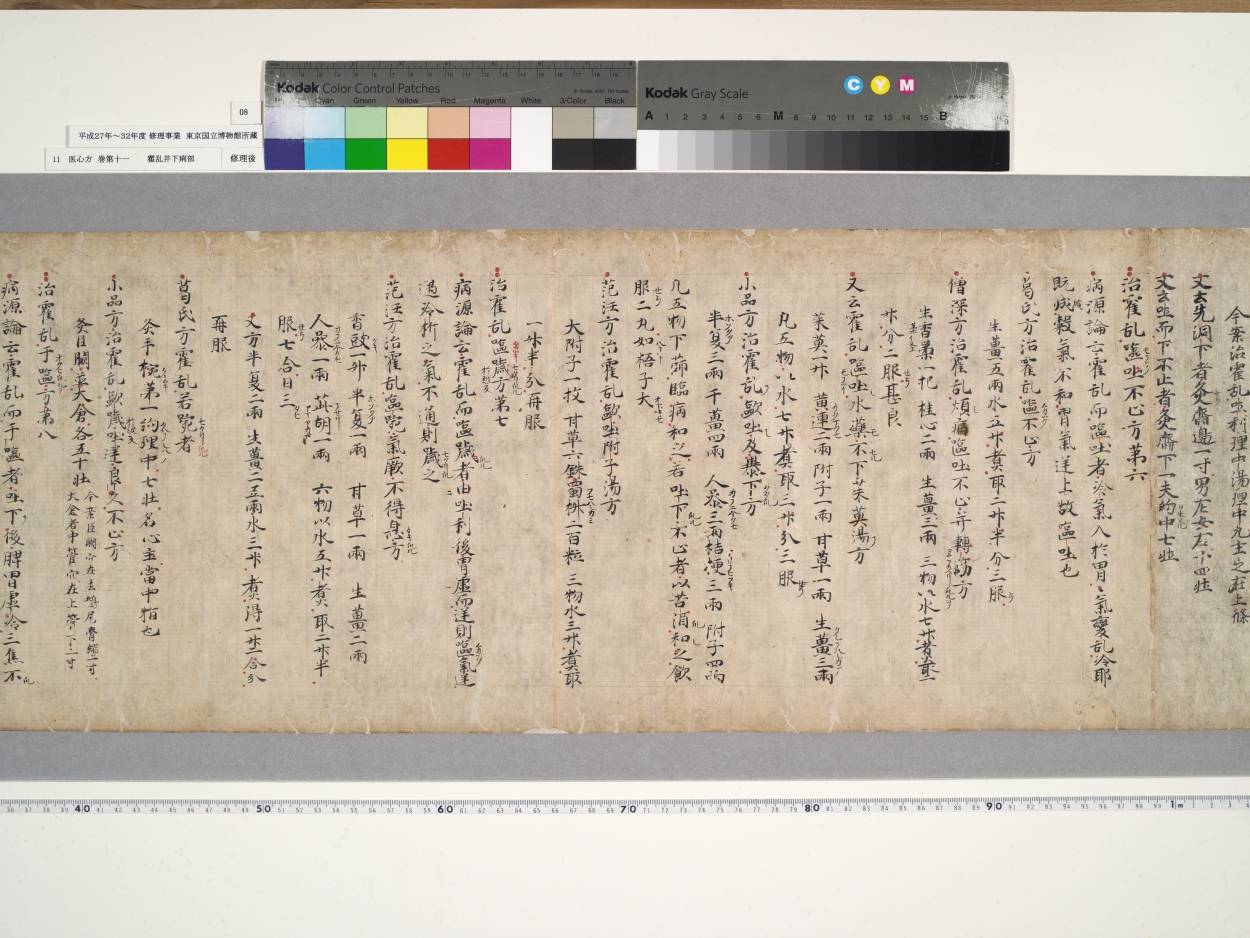 Kodak Color Control Patches
Blue Cyan Green Yellow Red Magenta White 3/Color Black
Kodak Gray Scale
C Y M
A 1 2 3 4 5 6 M 8 9 10 11 12 13 14 15 B
08
平成27年～32年度 修理事業 東京国立博物館所蔵
11 医心方 巻第十一 霍乱并下痢部 修理後
今案治霍乱吐利理中湯理中丸主之在上條
又云先洞下者灸齊邊一寸男左女右十四壯
又云吐而下不止者灸齊下一夫約中七壯
治霍乱嘔吐不止方第六
病源論云霍乱而嘔吐者冷氣入於胃胃氣變乱冷耶
既成穀氣不和胃氣逆上故嘔吐也
葛氏方治霍乱嘔不止方
生薑五兩水五升煮取二升半分三服
僧深方治霍乱煩痛嘔吐不止并轉筋方
生香薷一把 桂心二兩 生薑三兩 三物以水七升煮取二
升分二服甚良
又云霍乱嘔吐水藥不下茱萸湯方
茱萸一升 黄連二兩 附子一兩 甘草一兩 生薑三兩
凡五物以水七升煮取三升分三服
小品方治霍乱歐吐及暴下方
半夏三兩 干薑四兩 人參三兩 桔梗三兩 附子四兩
凡五物下篩臨病和之若吐下不止者以苦酒和之飲
服二丸如梧子大
范汪方治霍乱歐吐附子湯方
大附子一枚 甘草六銖 蜀椒二百粒 三物水三升煮取
一升半分再服
治霍乱嘔噦方第七
病源論云霍乱而嘔噦者由吐利後胃虛而逆則嘔氣逆
遇冷折之氣不通則噦之
范汪方治霍乱嘔噦氣厥不得息方
香豉一升 半夏一兩 甘草一兩 生薑二兩
人參一兩 茈胡一兩 六物以水五升煮取二升半
服七合日三
又方半夏二兩 生薑二兩水三升煮得一升二合分
再服
葛氏方霍乱若噦者
灸手椀第一約理中七壯名心主當中指也
小品方治霍乱歐噦吐逆良久不止方
灸巨闕并太倉各五十壯
今案巨闕穴在去鳩尾骨端一寸
大倉者中管穴在上管下一寸
治霍乱干嘔方第八
病源論云霍乱而干嘔者吐下後脾胃虛冷三焦不
40 50 60 70 80 90 1m